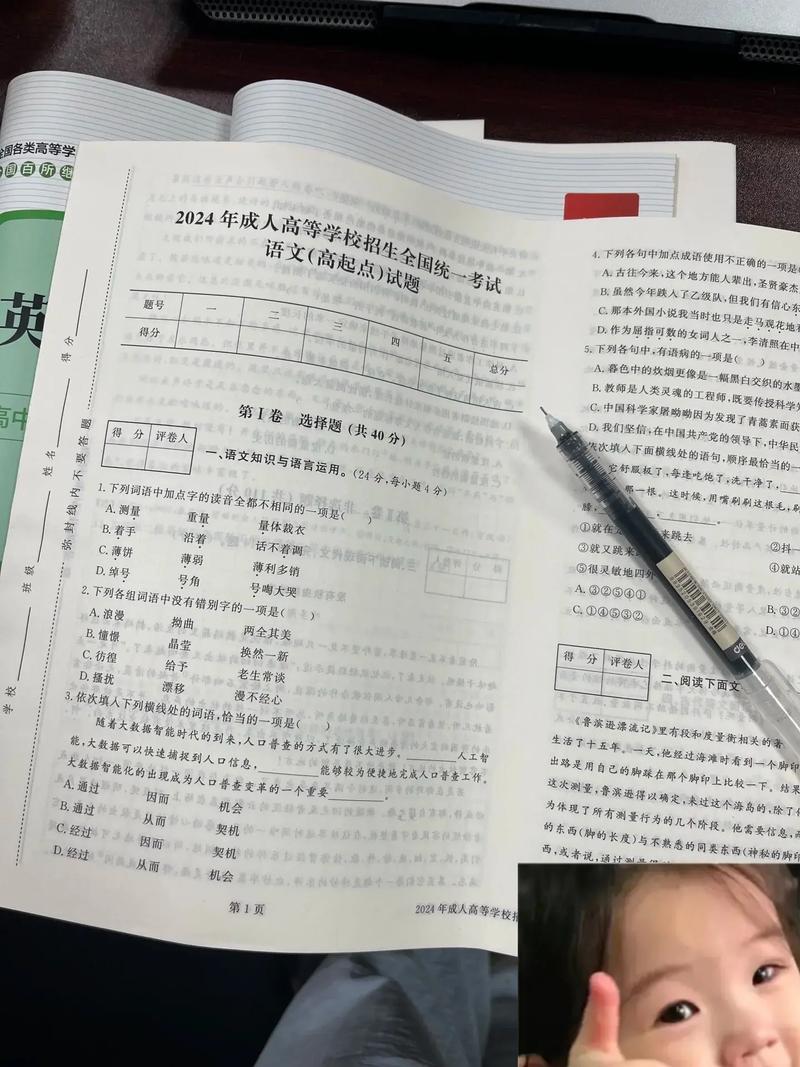 全国各类高等学
国百所继
英
高中
学校
班级
姓名
得分
弥封线内不要答题
2024年成人高等学校招生全国统一考试
语文(高起点)试题
题号 一 二 三 四 五 总分
得分
第Ⅰ卷 选择题(共40分)
得 分 评卷人
一、语文知识与语言运用。(24分,每小题4分)
1.下列词语中加点字的读音全都不相同的一项是( )
A.测量 重量 量体裁衣
B.着手 沿着 话不着调
C.薄饼 薄弱 薄利多销
D.绰号 号角 号啕大哭
2.下列各组词语中没有错别字的一项是( )
A.浪漫 拗曲 两全其美
B.憧憬 晶莹 换然一新
C.彷徨 给予 老生常谈
D.搔扰 漂移 漫不经心
3.依次填入下列横线处的词语,恰当的一项是( )
随着大数据智能时代的到来,人口普查的方式有了很大进步。________人工智
能,大数据可以快速捕捉到人口信息,________能够较为便捷地完成人口普查工作。
大数据智能化的出现成为人口普查变革的一个重要________。
A.通过 因而 机会
B.通过 从而 契机
C.经过 因而 契机
D.经过 从而 机会
第1页
2024年成人高等学校招
4.下列各句中加点成语使用不正确的一项是
A.古往今来,这个地方能人辈出,圣贤豪杰
B.虽然今年跌入了乙级队,但我们有信心东
C.那本外国小说我当时也只是走马观花地
D.作为屈指可数的女词人之一,李清照在中
5.下列各句中,有语病的一项是( )
A.暮色中的炊烟更像是一幅黑白交织的水墨
B.教师是人类灵魂的工程师,既要传授科学知
C.中国科学家屠呦呦因为发现了青蒿素而获
D.我们坚信,在中国共产党的领导下,中华民
依次填入下面横线处的语句,顺序最恰当的一
它舒服极了,每逢吃饱了,洗干净了,
那一根。这时候,用嘴刷刷这根毛,刷
膝,
①就在 来跳去 ②抖一
③就又跳来 ④就站
⑤很灵敏地四外
A.③②⑤④① B.③②
C.①④⑤③② D.①④
得 分 评卷人
二、阅读下面文
《鲁滨逊漂流记》里有段和度量衡相关的著
生活了十五年。一天,他经过海滩时看到一个脚印
出路是用自己的脚踩在那个脚印上比较一下。结果
这次测量,鲁滨逊得以确定,来过这个海岛的,除了他
为体现了所有测量行为的几个阶段。他需要信息,
的东西(脚的长度)与不熟悉的同类东西(神秘的脚印
西,或者说,通过测量